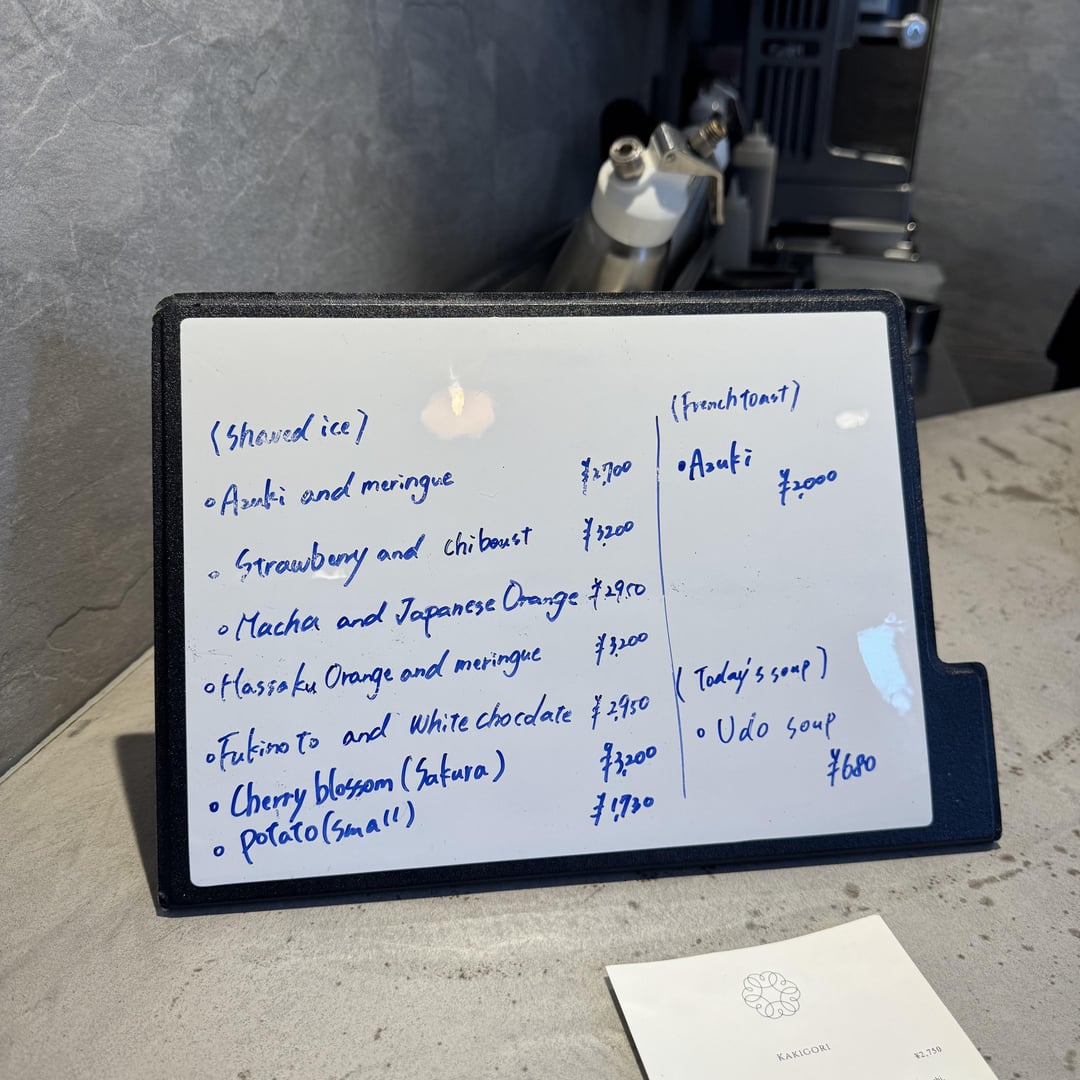 (Shaved ice)
Azuki and meringue ¥2,700
Strawberry and chiboust ¥3,200
Macha and Japanese Orange ¥2,950
Hassaku Orange and meringue ¥3,200
Fukinoto and White chocolate ¥2,950
Cherry blossom (Sakura) ¥3,200
potato (small) ¥1,730
(French toast)
Azuki
¥2,000
(Today's soup)
Udo soup
¥680
KAKIGORI
¥2,750